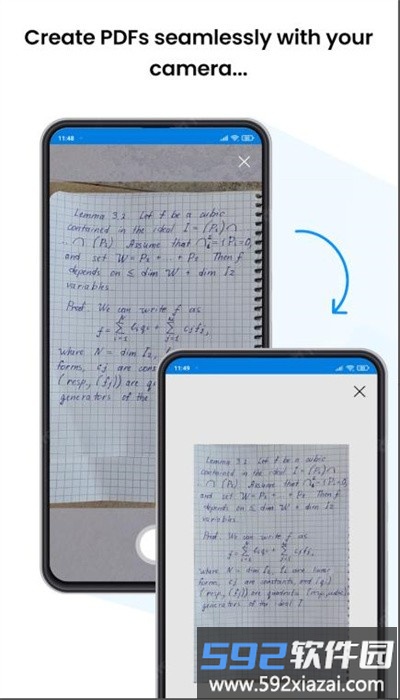 Create PDFs seamlessly with your
camera...
11:48
Lemma 3.2 Let f be a cubic
contained in the ideal I = (P₁)∩
∩ (Pₖ) Assume that
and set W = P₁ + .. + Pₑ Then f
depends on ≤ dim W + dim I₂
variables.
Proof. We can write f as
where N = dim I₂,
forms, cj are cons
(resp, (fj)) are qu
generators of the
11:49
Lemma 3.2 Let f be a cubic
contained in the ideal I = (P₁)∩
∩ (Pₖ) Assume that
and set W = P₁ + .. + Pₑ Then f
depends on ≤ dim W + dim I₂
variables.
Proof. We can write f as
where N = dim I₂, are linear
forms, cj are constants, and (qi)
(resp, (fj)) are quadratic
generators of the ideal I.
592软件园
www.592xiazai.com